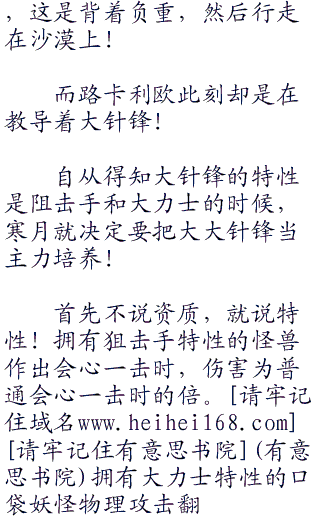 ，这是背着负重，然后行走
在沙漠上！
而路卡利欧此刻却是在
教导着大针锋！
自从得知大针锋的特性
是阻击手和大力士的时候，
寒月就决定要把大大针锋当
主力培养！
首先不说资质，就说特
性！拥有狙击手特性的怪兽
作出会心一击时，伤害为普
通会心一击时的倍。[请牢记
住域名www.heihei168.com]
[请牢记住有意思书院](有意
思书院)拥有大力士特性的口
袋妖怪物理攻击翻